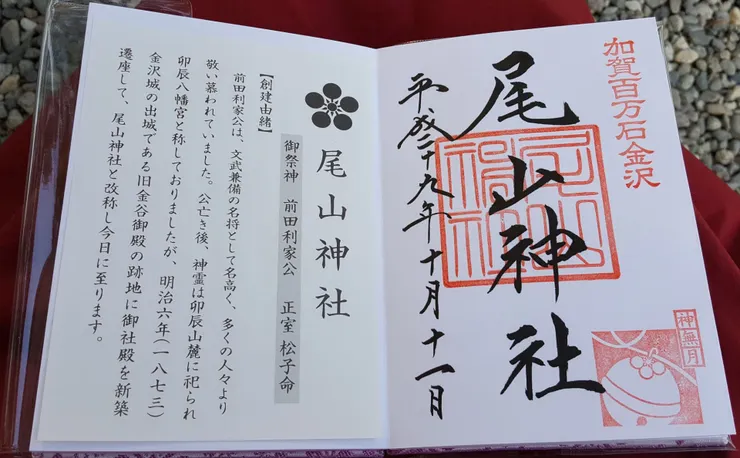 加賀百万石金沢
尾山神社
尾山神社
平成二十九年十月十一日
神無月
尾山神社
御祭神 前田利家公 正室 松子命
【創建由緒】
前田利家公は、文武兼備の名将として名高く、多くの人々より
敬い慕われていました。公亡き後、神霊は卯辰山麓に祀られ
卯辰八幡宮と称しておりましたが、明治六年(一八七三)
金沢城の出城である旧金谷御殿の跡地に御社殿を新築
遷座して、尾山神社と改称し今日に至ります。